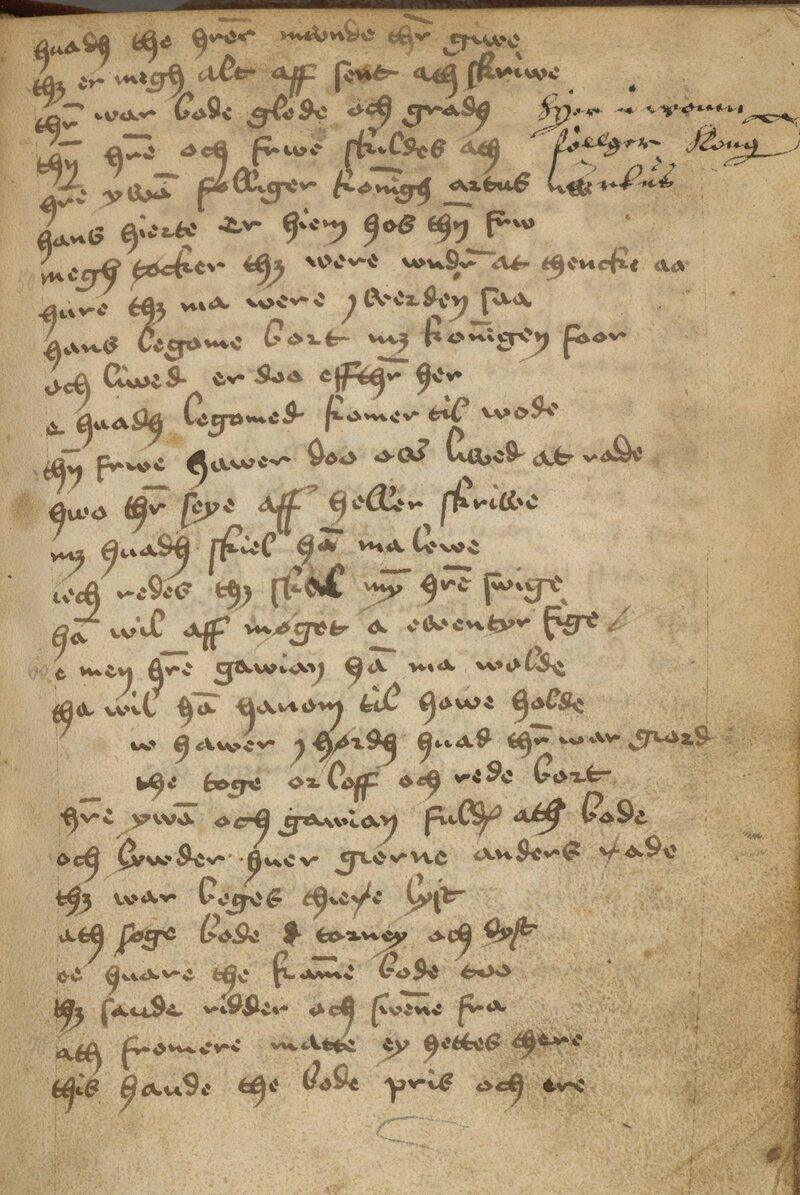 huadh the hrēr mwnde thr̄ giwe
thꝫ er megh alt aff sent ath skriwe
thr̄ war bode glede och gradh
thn̄ hrē och frwe skildes ath
hrē ywā følliger konn̄igh artus
hans hierte er hiem hos thn̄ frw
megh tøcker thꝫ were wndr̄ at thencke aa
hure thꝫ ma were j werden saa
hans legome bort mꝫ konn̄igen foor
och liwed er doo effthr̄ her
e huadh legomed komer til wode
thn̄ frwe hawer doo ows liwed at rade
hwo thr̄ seye aff heller skriwe
mꝫ huadh skiel hā ma lewe
iech redes thꝫ skal mȳ hrē swige
hā wil aff møget a ewentyr sige
e men hrē gawian hā ma wolde
tha wil hā hanom til howe holde
w hawer j hørdh huad thr̄ war giord
the toge orloff och rede bort
hrē ywā och gawian fuldꝭ ath bode
och lywder huer gierne anders rade
thꝫ war beges theire lyst
ath søge bode torney och dyst
ee huare the kam̄e bode too
thꝫ saude ridder och swen̄e fra
ath fromere matte ey hettes there
this haude the bode pris och ere
føllger Kong